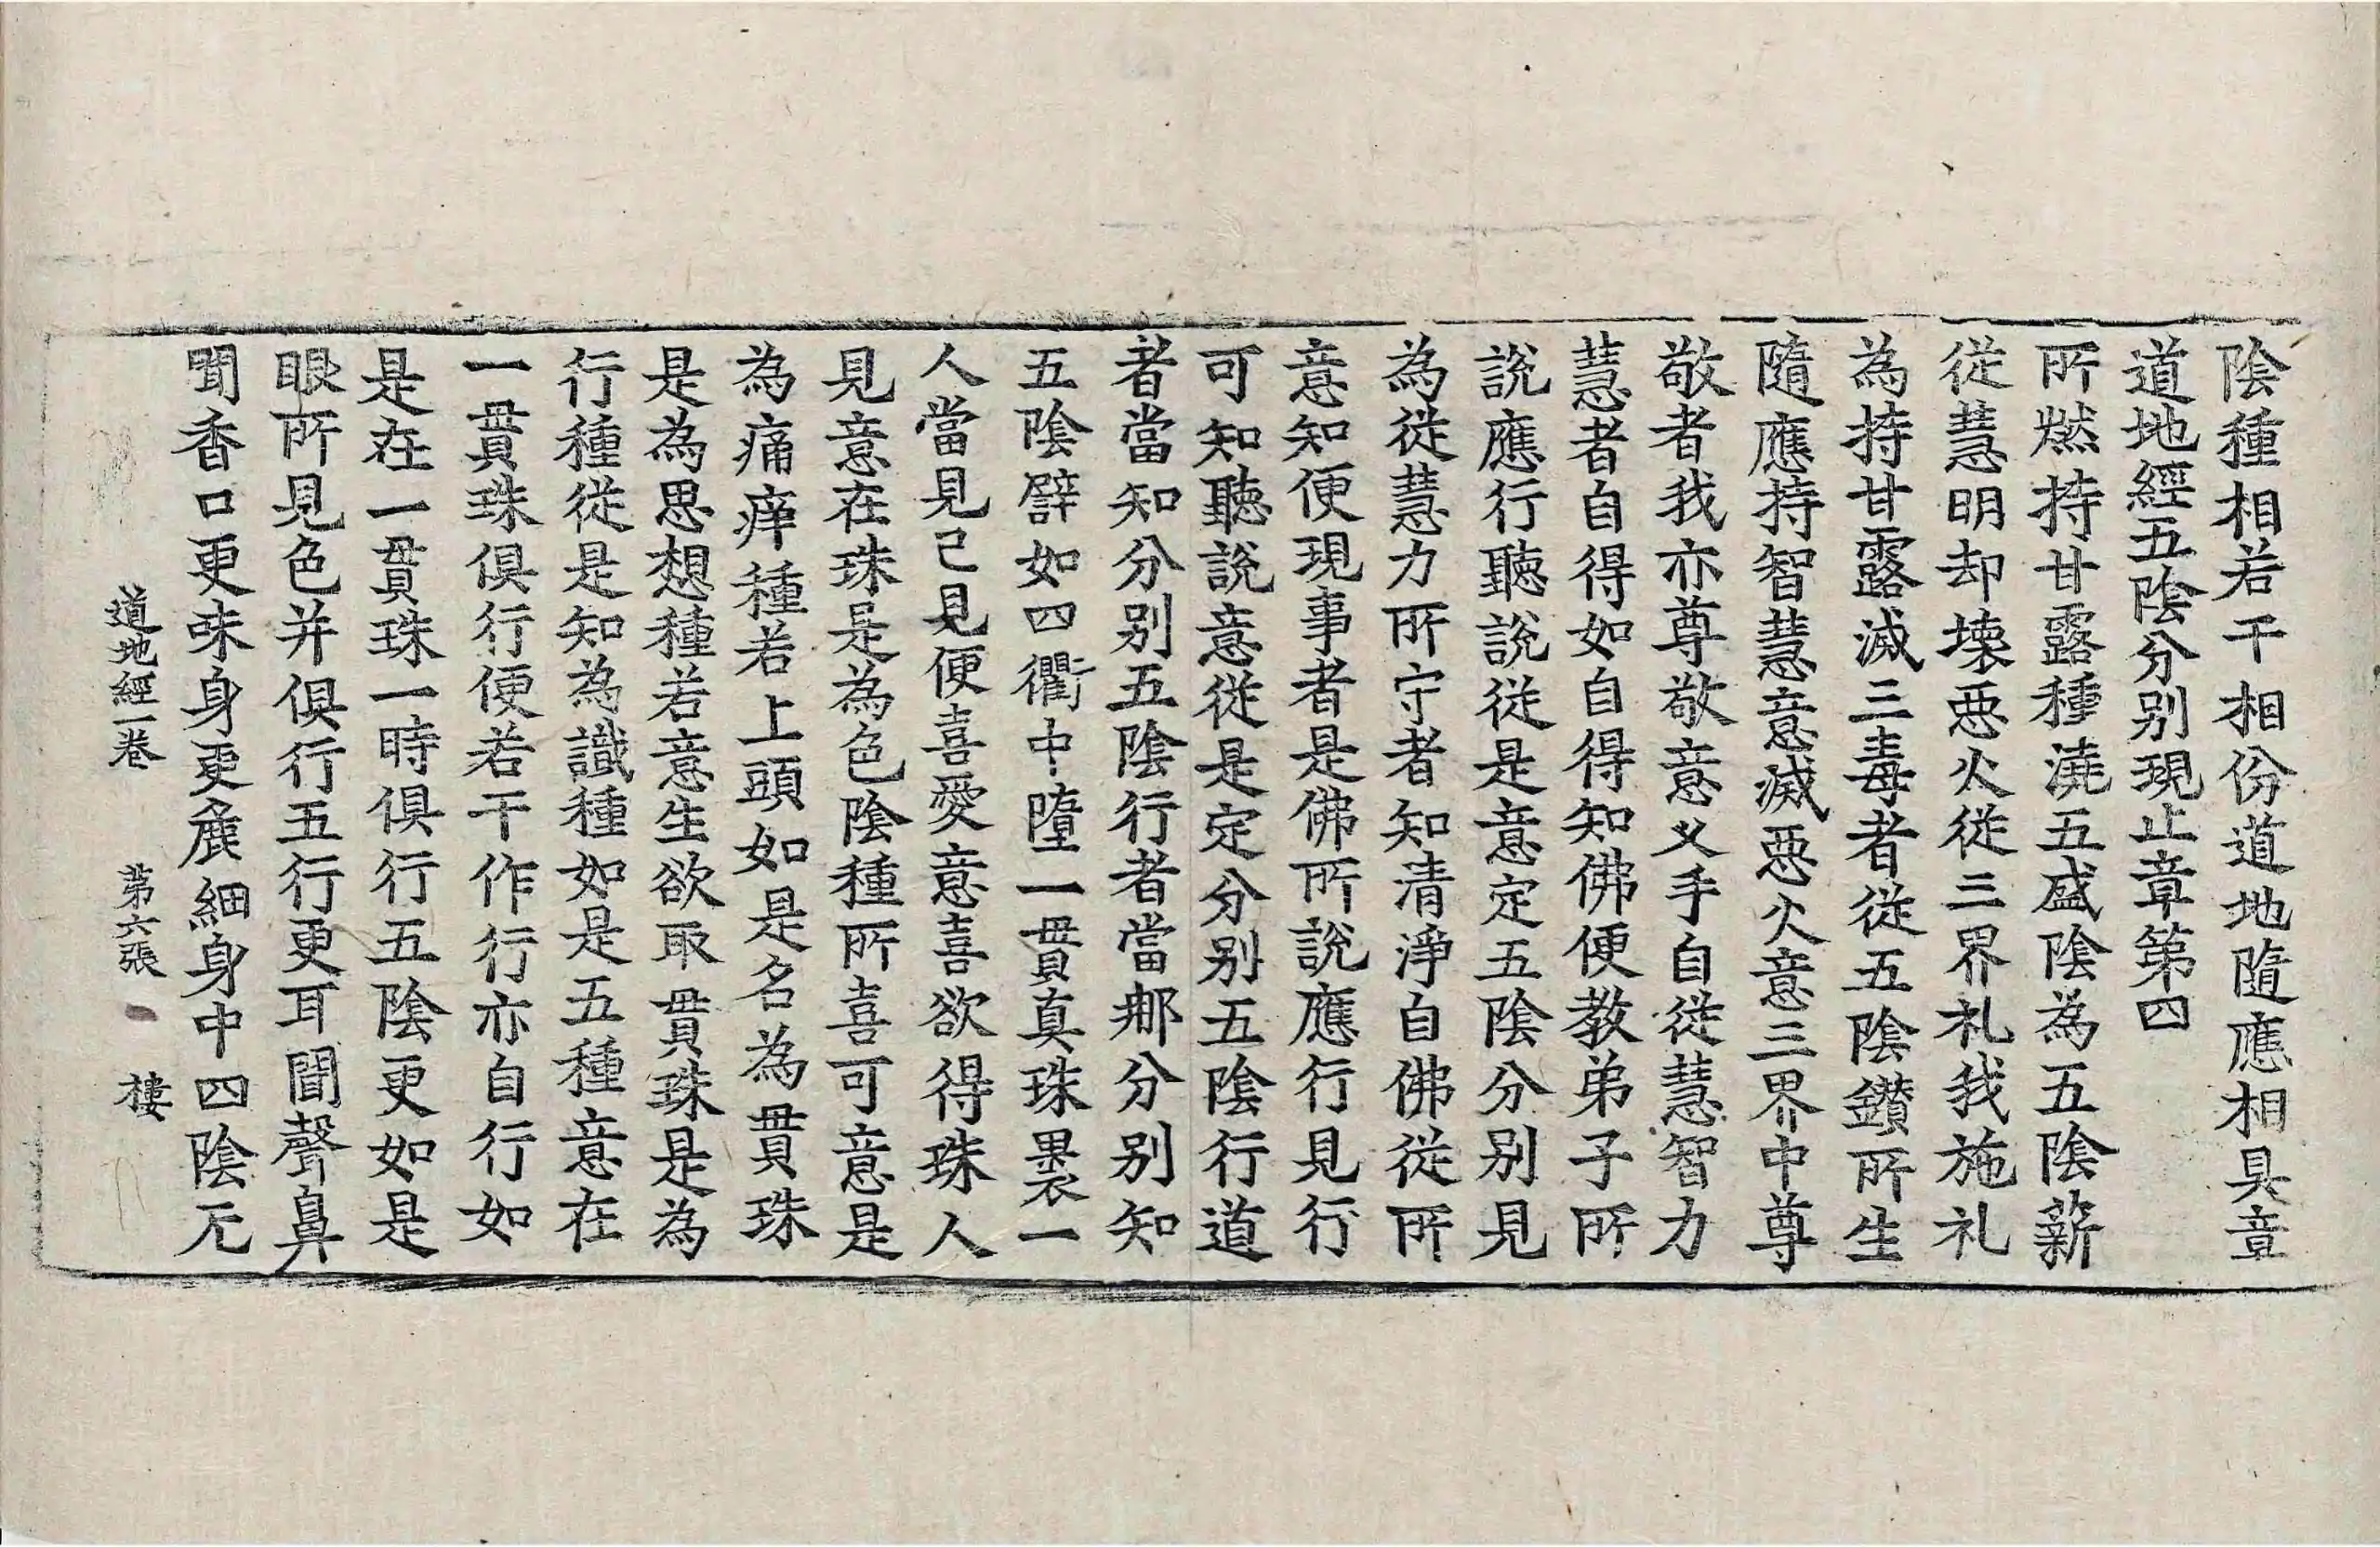 陰種相若干相份道地隨應相具章
道地經五陰分別現止章第四
所燃持甘露種澆五盛陰為五陰薪
從慧明却壞惡火從三界礼我施礼
為持甘露滅三毒者從五陰鑽所生
隨應持智慧意滅惡火意三界中尊
敬者我亦尊敬意义手自從慧智力
慧者自得如自得知佛便教弟子所
說應行聽說從是意定五陰分別見
為從慧力所守者知清淨自佛從所
意知便現事者是佛所說應行見行
可知聽說意從是定分別五陰行道
者當知分別五陰行者當那分別知
五陰譬如四衢中墮一貫真珠裹一
人當見已見便喜愛意喜欲得珠人
見意在珠是為色陰種所喜可意是
為痛痒種若上頭如是名為貫珠
是為思想種若意生欲取貫珠是為
行種從是知為識種如是五種意在
一貫珠俱行便若干作行亦自行如
是在一貫珠一時俱行五陰更如是
眼所見色并俱行五行更耳聞聲鼻
聞香口更味身更麁細身中四陰无
道地經一卷 第六張 樓